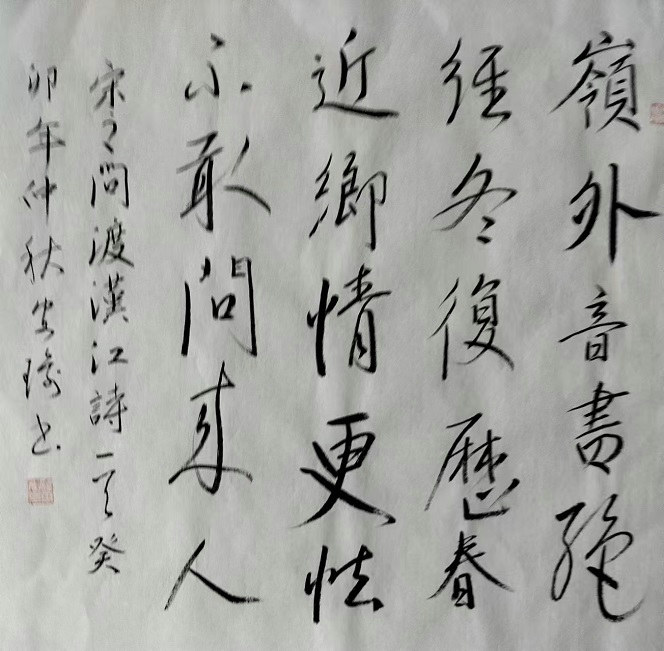 嶺外音書絕
經冬復歷春
近鄉情更怯
不敢問來人
宋之問渡漢江詩一首癸
卯年仲秋安瑜書